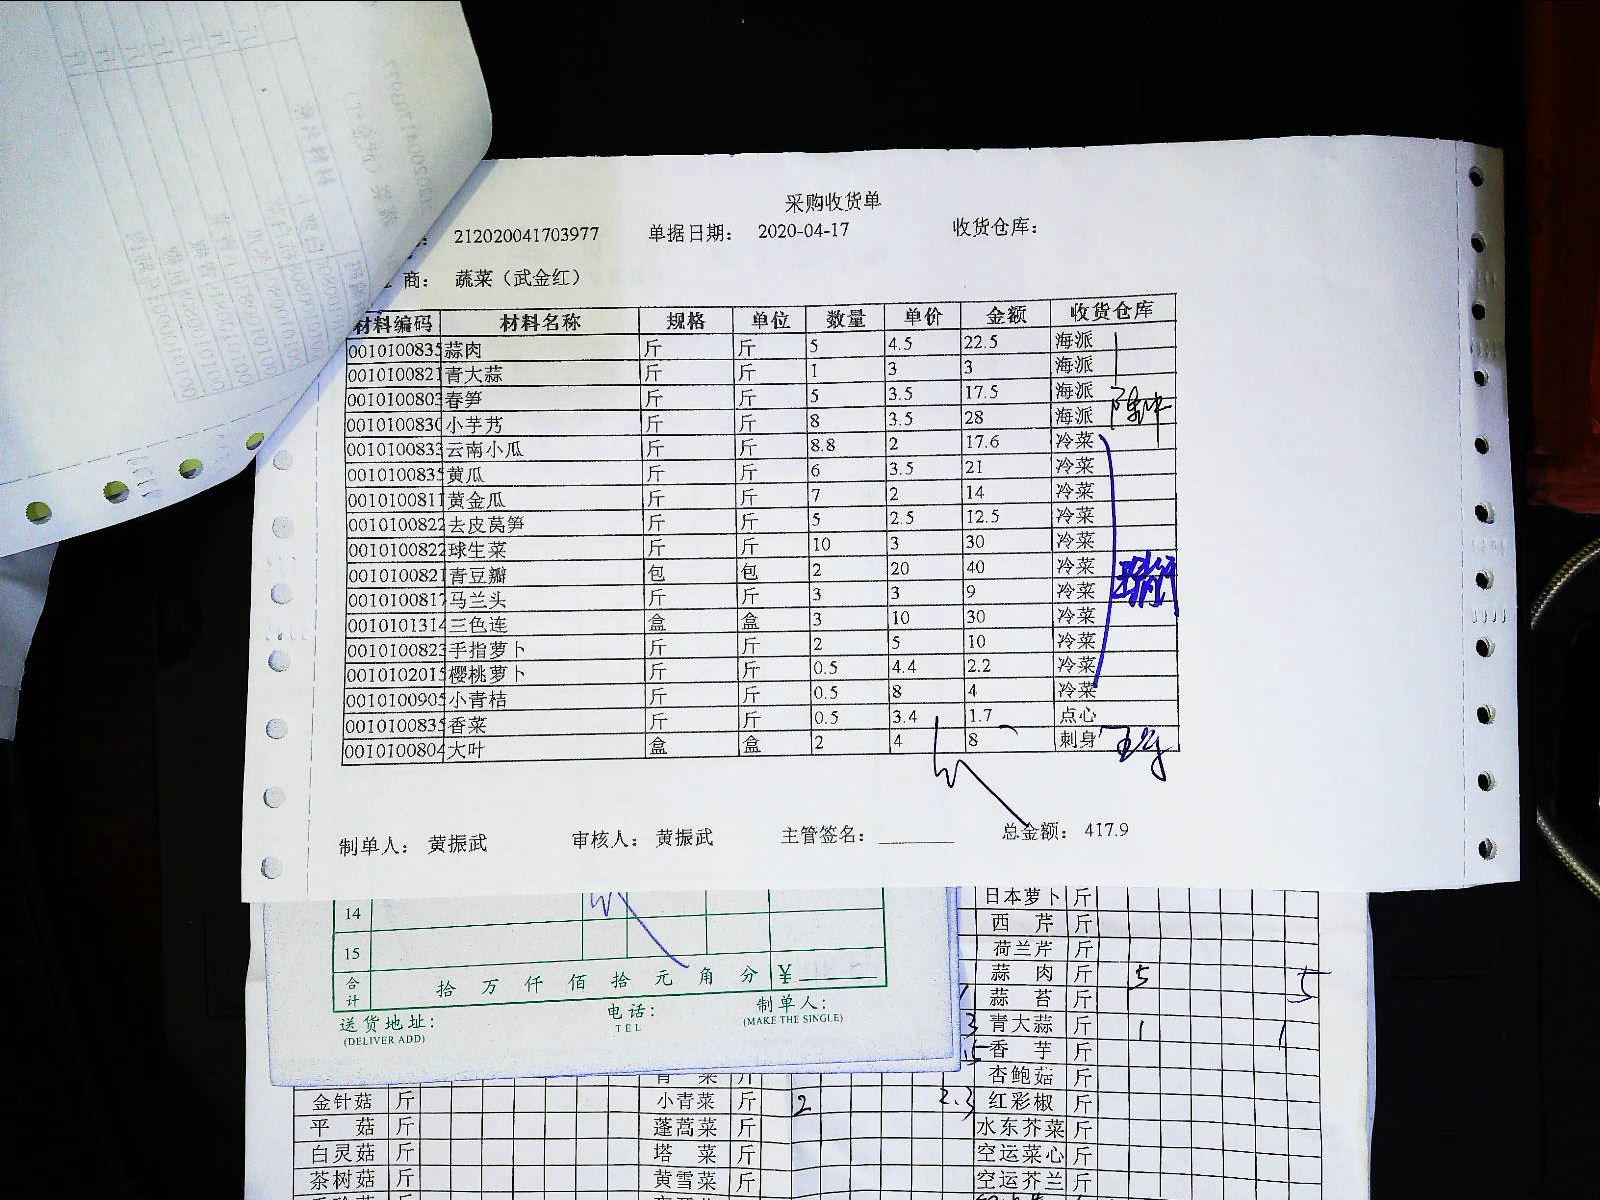 采购收货单
212020041703977 单据日期: 2020-04-17 收货仓库:
商: 蔬菜（武金红）
材料编码 材料名称 规格 单位 数量 单价 金额 收货仓库
0010100835 蒜肉 斤 斤 5 4.5 22.5 海派
0010100821 青大蒜 斤 斤 1 3 3 海派
0010100803 春笋 斤 斤 5 3.5 17.5 海派
001010083 小芋艿 斤 斤 8 3.5 28 海派
0010100833 云南小瓜 斤 斤 8.8 2 17.6 冷菜
0010100835 黄瓜 斤 斤 6 3.5 21 冷菜
0010100811 黄金瓜 斤 斤 7 2 14 冷菜
0010100822 去皮莴笋 斤 斤 5 2.5 12.5 冷菜
0010100822 球生菜 斤 斤 10 3 30 冷菜
0010100821 青豆瓣 包 包 2 20 40 冷菜
0010100817 马兰头 斤 斤 3 3 9 冷菜
0010101314 三色连 盒 盒 3 10 30 冷菜
0010100823 手指萝卜 斤 斤 2 5 10 冷菜
0010102015 樱桃萝卜 斤 斤 0.5 4.4 2.2 冷菜
0010100905 小青桔 斤 斤 0.5 8 4 冷菜
0010100835 香菜 斤 斤 0.5 3.4 1.7 点心
0010100804 大叶 盒 盒 2 4 8 刺身
制单人: 黄振武 审核人: 黄振武 主管签名: ________ 总金额: 417.9
14
15
合计 拾 万 仟 佰 拾 元 角 分 ¥
送货地址: 电话: 制单人:
(DELIVER ADD) TEL (MAKE THE SINGLE)
日本萝卜 斤
西 芹 斤
荷兰芹 斤
蒜 肉 斤 5 5
蒜 苔 斤
青大蒜 斤 1 1
香 芋 斤
杏鲍菇 斤
金针菇 斤 小青菜 斤 2 2.3 红彩椒 斤
平 菇 斤 蓬蒿菜 斤 水东芥菜 斤
白灵菇 斤 塔 菜 斤 空运菜心 斤
茶树菇 斤 黄雪菜 斤 空运芥兰 斤